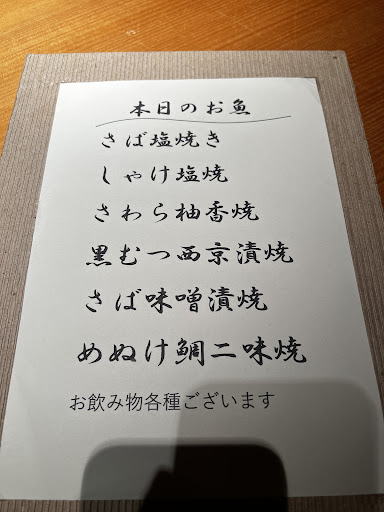 本日のお魚
さば塩焼き
しゃけ塩焼
さわら柚香焼
黒むつ西京漬焼
さば味噌漬焼
めぬけ鯛二味焼
お飲み物各種ございます